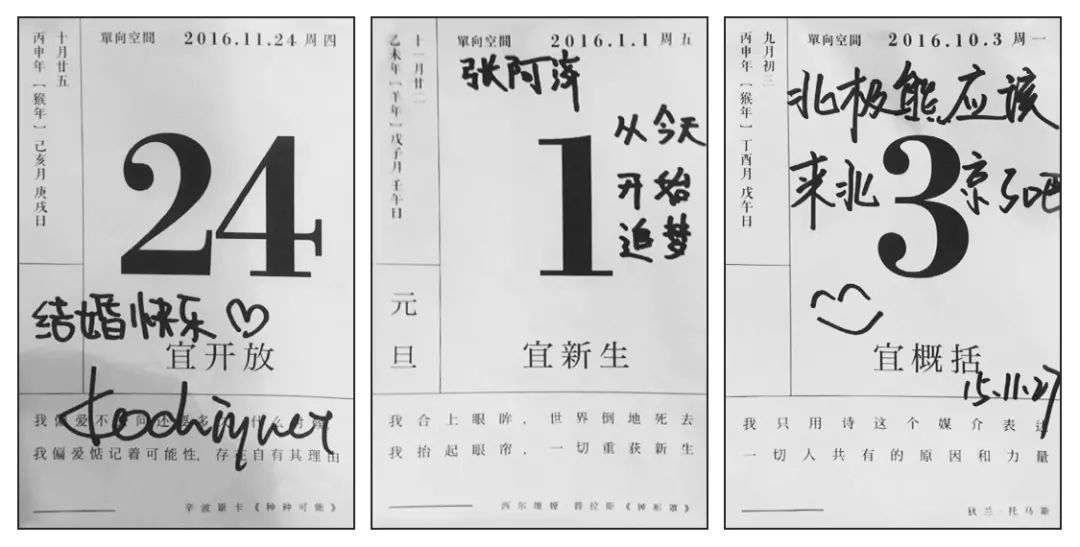 單向空間 2016.11.24 周四
十月廿五
丙申年【猴年】己亥月 庚戌日
24
结婚快乐
宜开放
我偏爱不
我偏爱惦记着可能性，存在自有其理由
辛波斯卡《种种可能》
單向空間 2016.1.1 周五
十一月廿二
乙未年【羊年】戊子月 壬午日
张阿
1
从今天
开始
追梦
元旦
宜新生
我合上眼眸，世界倒地死去
我抬起眼帘，一切重获新生
西尔维娅·普拉斯《钟形罩》
單向空間 2016.10.3 周一
九月初三
丙申年【猴年】丁酉月 戊午日
北极熊应该
来北京了吧
3
宜概括
15.11.27
我只用诗这个媒介表达
一切人共有的原因和力量
狄兰·托马斯